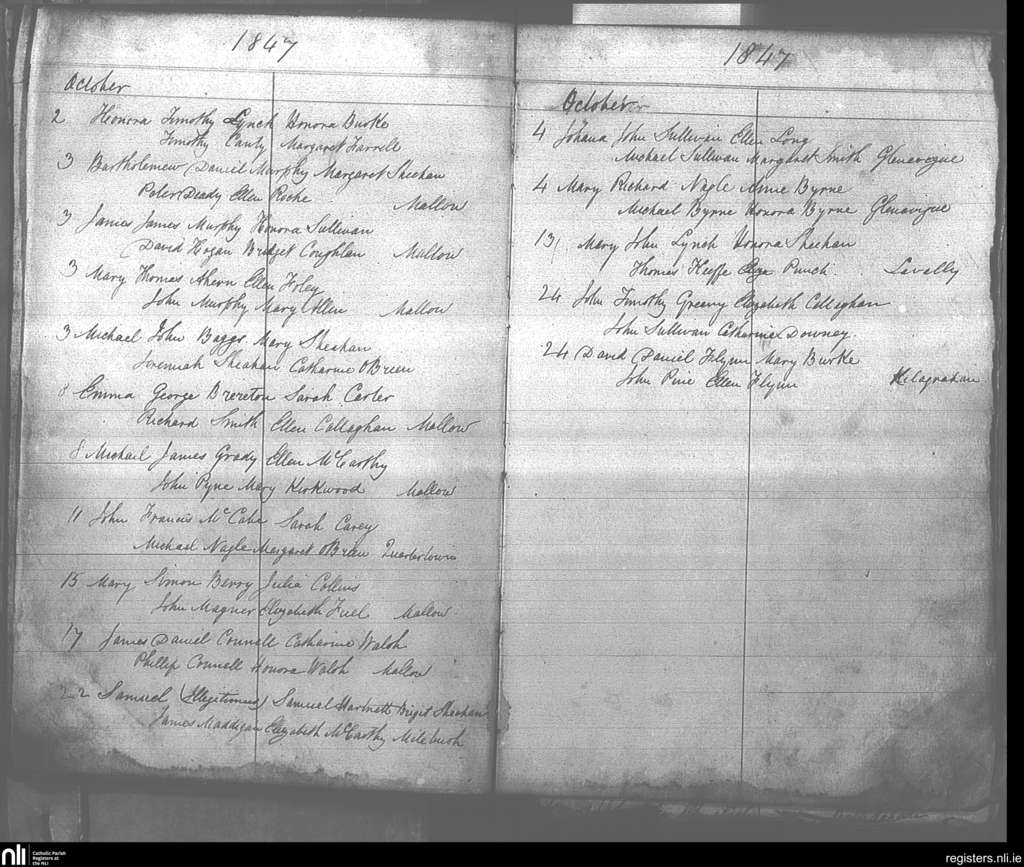 1847
October
2 Honora Timothy Lynch Honora Burke
Timothy Canty Margaret Farrell
3 Bartholemew Daniel Murphy Margaret Sheehan
Peter Deady Ellen Roche Mallow
3 James James Murphy Honora Sullivan
David Hogan Bridget Coughlan Mallow
3 Mary Thomas Ahern Ellen Foley
John Murphy Mary Allen Mallow
3 Michael John Baggs Mary Sheahan
Jeremiah Sheahan Catharine OBrien
8 Emma George Brereton Sarah Carter
Richard Smith Ellen Callaghan Mallow
8 Michael James Grady Ellen McCarthy
John Pyne Mary Kirkwood Mallow
11 John Francis McCabe Sarah Carey
Michael Nagle Margaret OBrien Quartertown
15 Mary Simon Berry Julia Collins
John Magner Elizabeth Mallow
17 James Daniel Connell Catharine Walsh
Phillip Connell Honora Walsh Mallow
22 Samuel Samuel Hartnett Brigit Sheahan
James Maddigan Elizabeth McCarthy Milebush
1847
October
4 Johana John Sullivan Ellen Long
Michael Sullivan Margaret Smith Glenavigue
4 Mary Richard Nagle Annie Byrne
Michael Byrne Honora Byrne Glenavigue
13 Mary John Lynch Honora Sheehan
Thomas Keeffe Eliza Punch Lavally
24 John Timothy Greany Elizabeth Callaghan
John Sullivan Catharine Downey
24 David Daniel Flynn Mary Burke
John Pine Ellen Flynn
nli Catholic Parish
Registers at
the NLI
registers.nli.ie